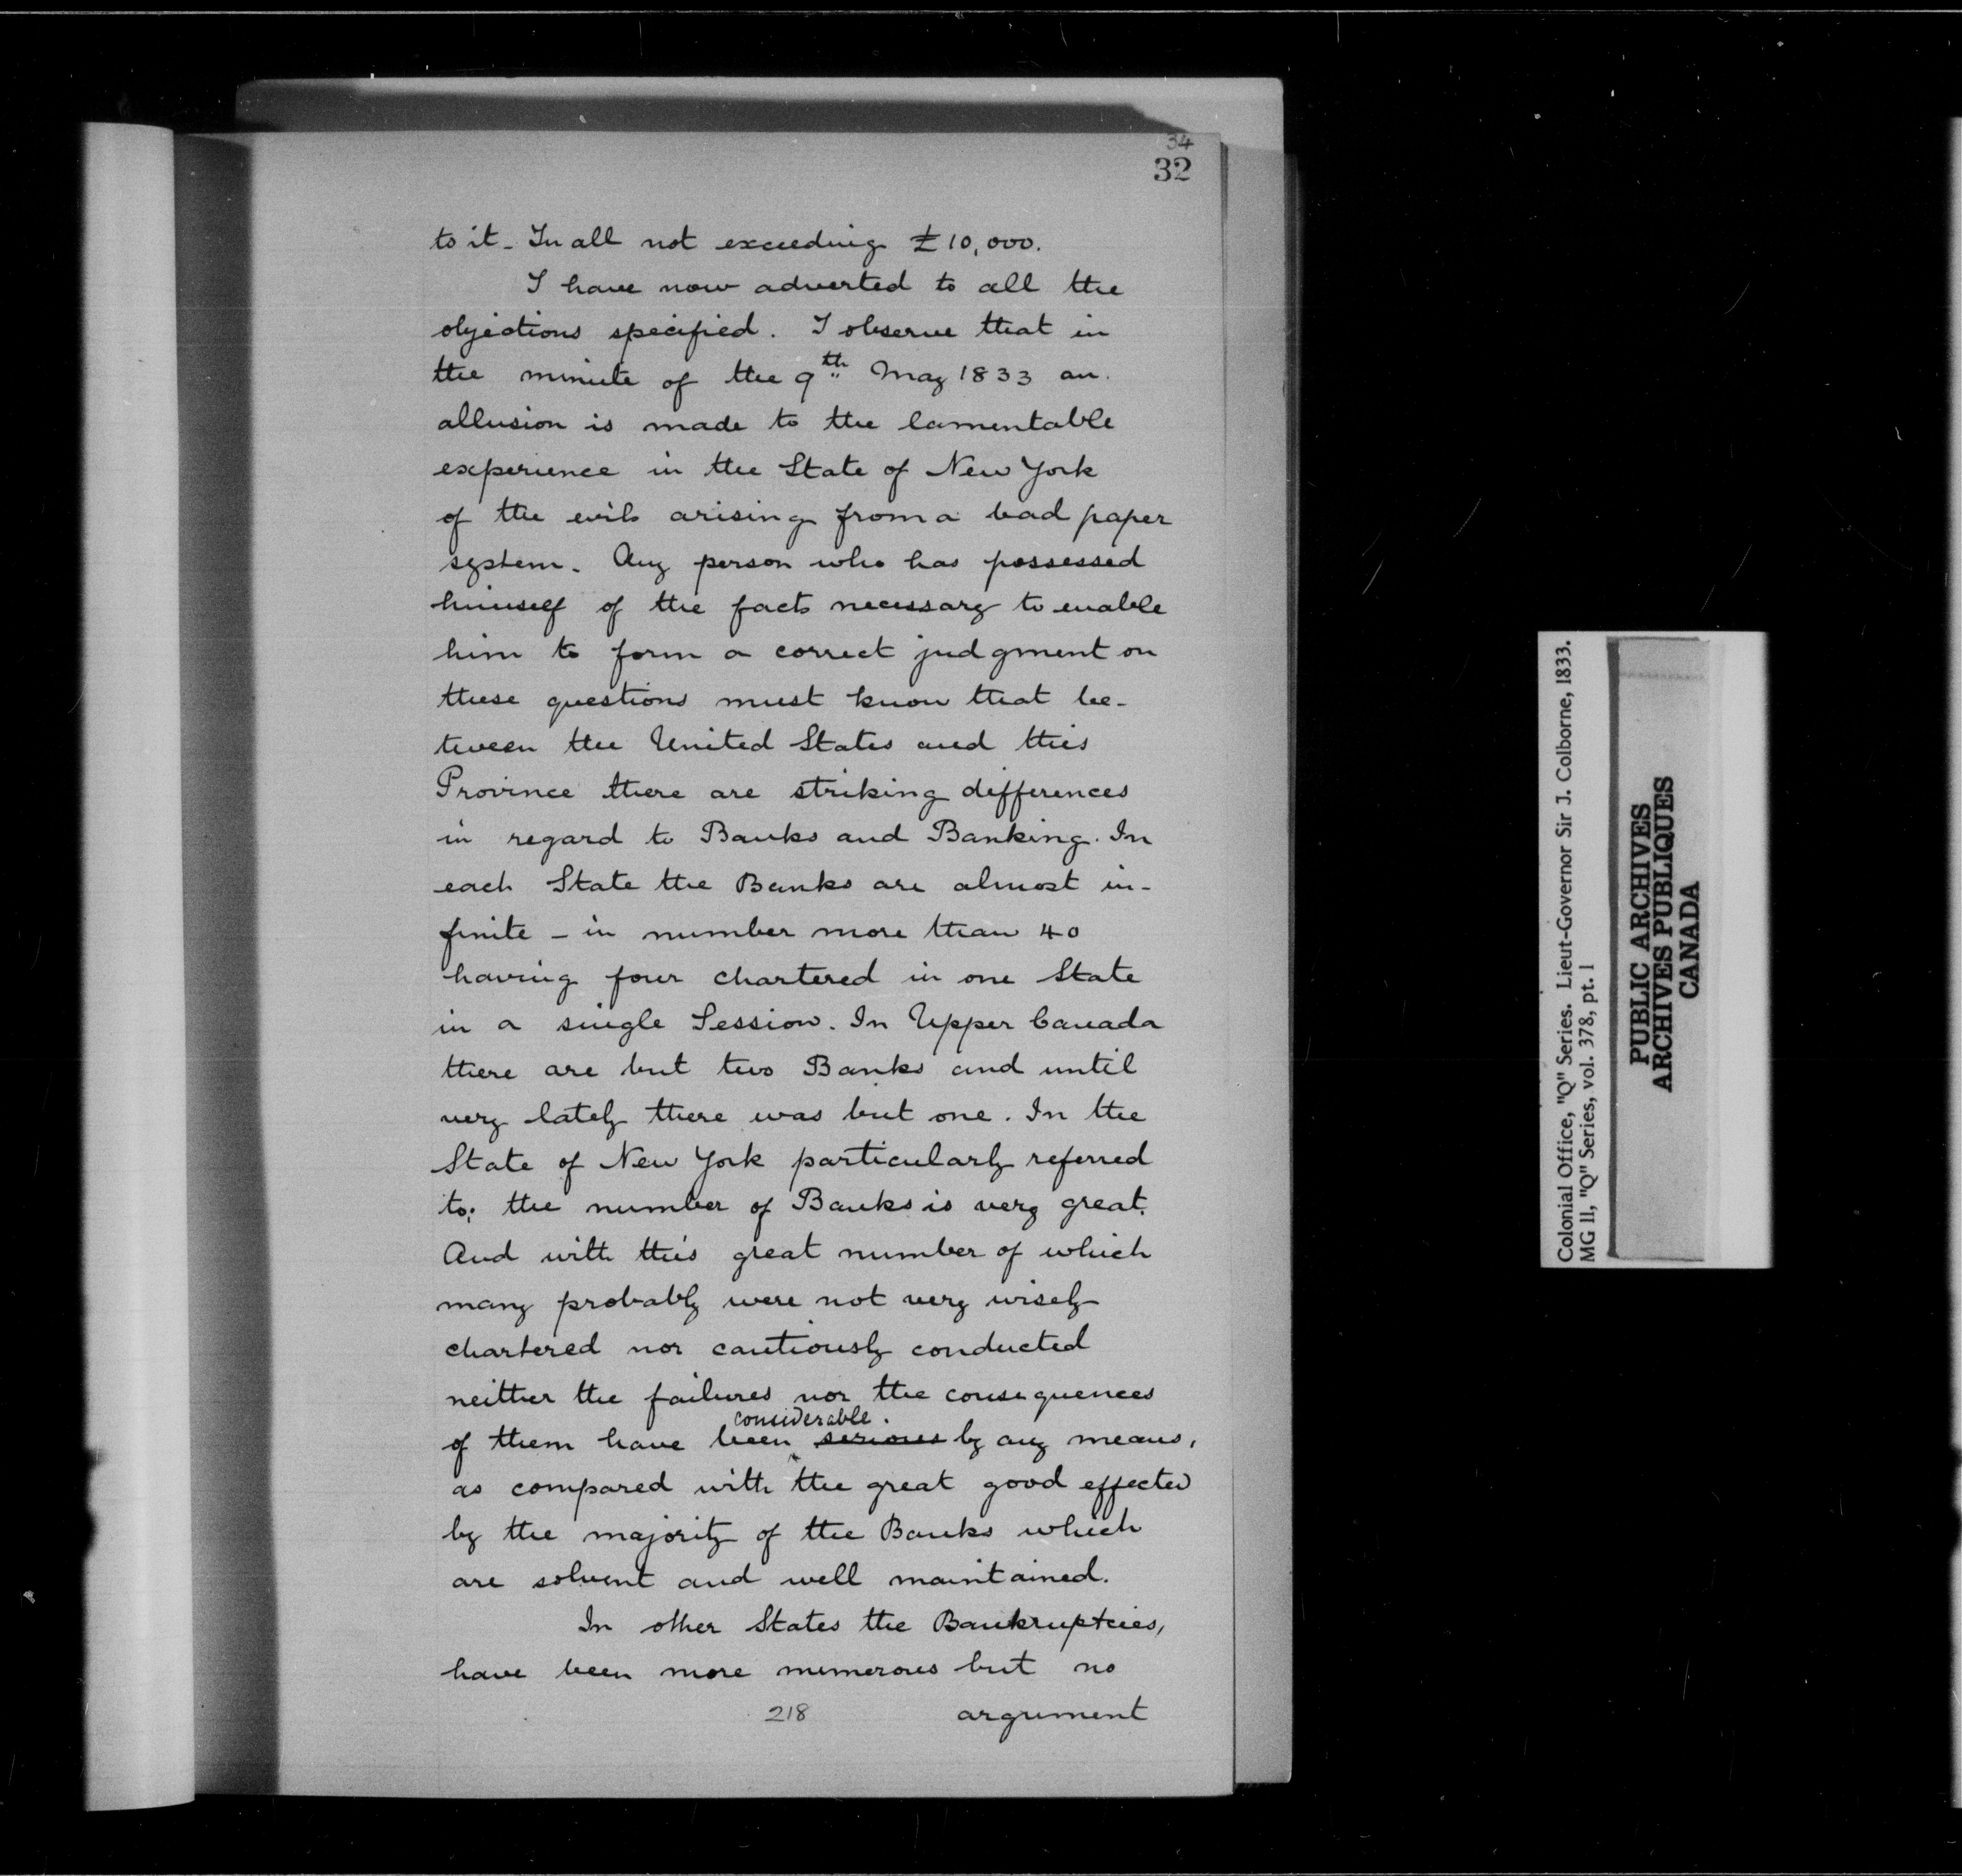 34
32
to it - In all not exceeding £10,000.
I have now adverted to all the
objections specified. I observe that in
the minute of the 9th May 1833 an
allusion is made to the lamentable
experience in the State of New York
of the evils arising from a bad paper
system. Any person who has possessed
himself of the facts necessary to enable
him to form a correct judgment on
these questions must know that be-
tween the United States and this
Province there are striking differences
in regard to Banks and Banking. In
each State the Banks are almost in-
finite - in number more than 40
having four chartered in one State
in a single Session. In Upper Canada
there are but two Banks and until
very lately there was but one. In the
State of New York particularly referred
to; the number of Banks is very great.
And with this great number of which
many probably were not very wisely
chartered nor cautiously conducted
neither the failures nor the consequences
considerable.
of them have been serious by any means,
as compared with the great good effected
by the majority of the Banks which
are solvent and well maintained.
In other States the Bankruptcies,
have been more numerous but no
218 argument
Colonial Office, "Q" Series. Lieut-Governor Sir J. Colborne, 1833.
MG 11, "Q" Series, vol. 378, pt. 1
PUBLIC ARCHIVES
ARCHIVES PUBLIQUES
CANADA